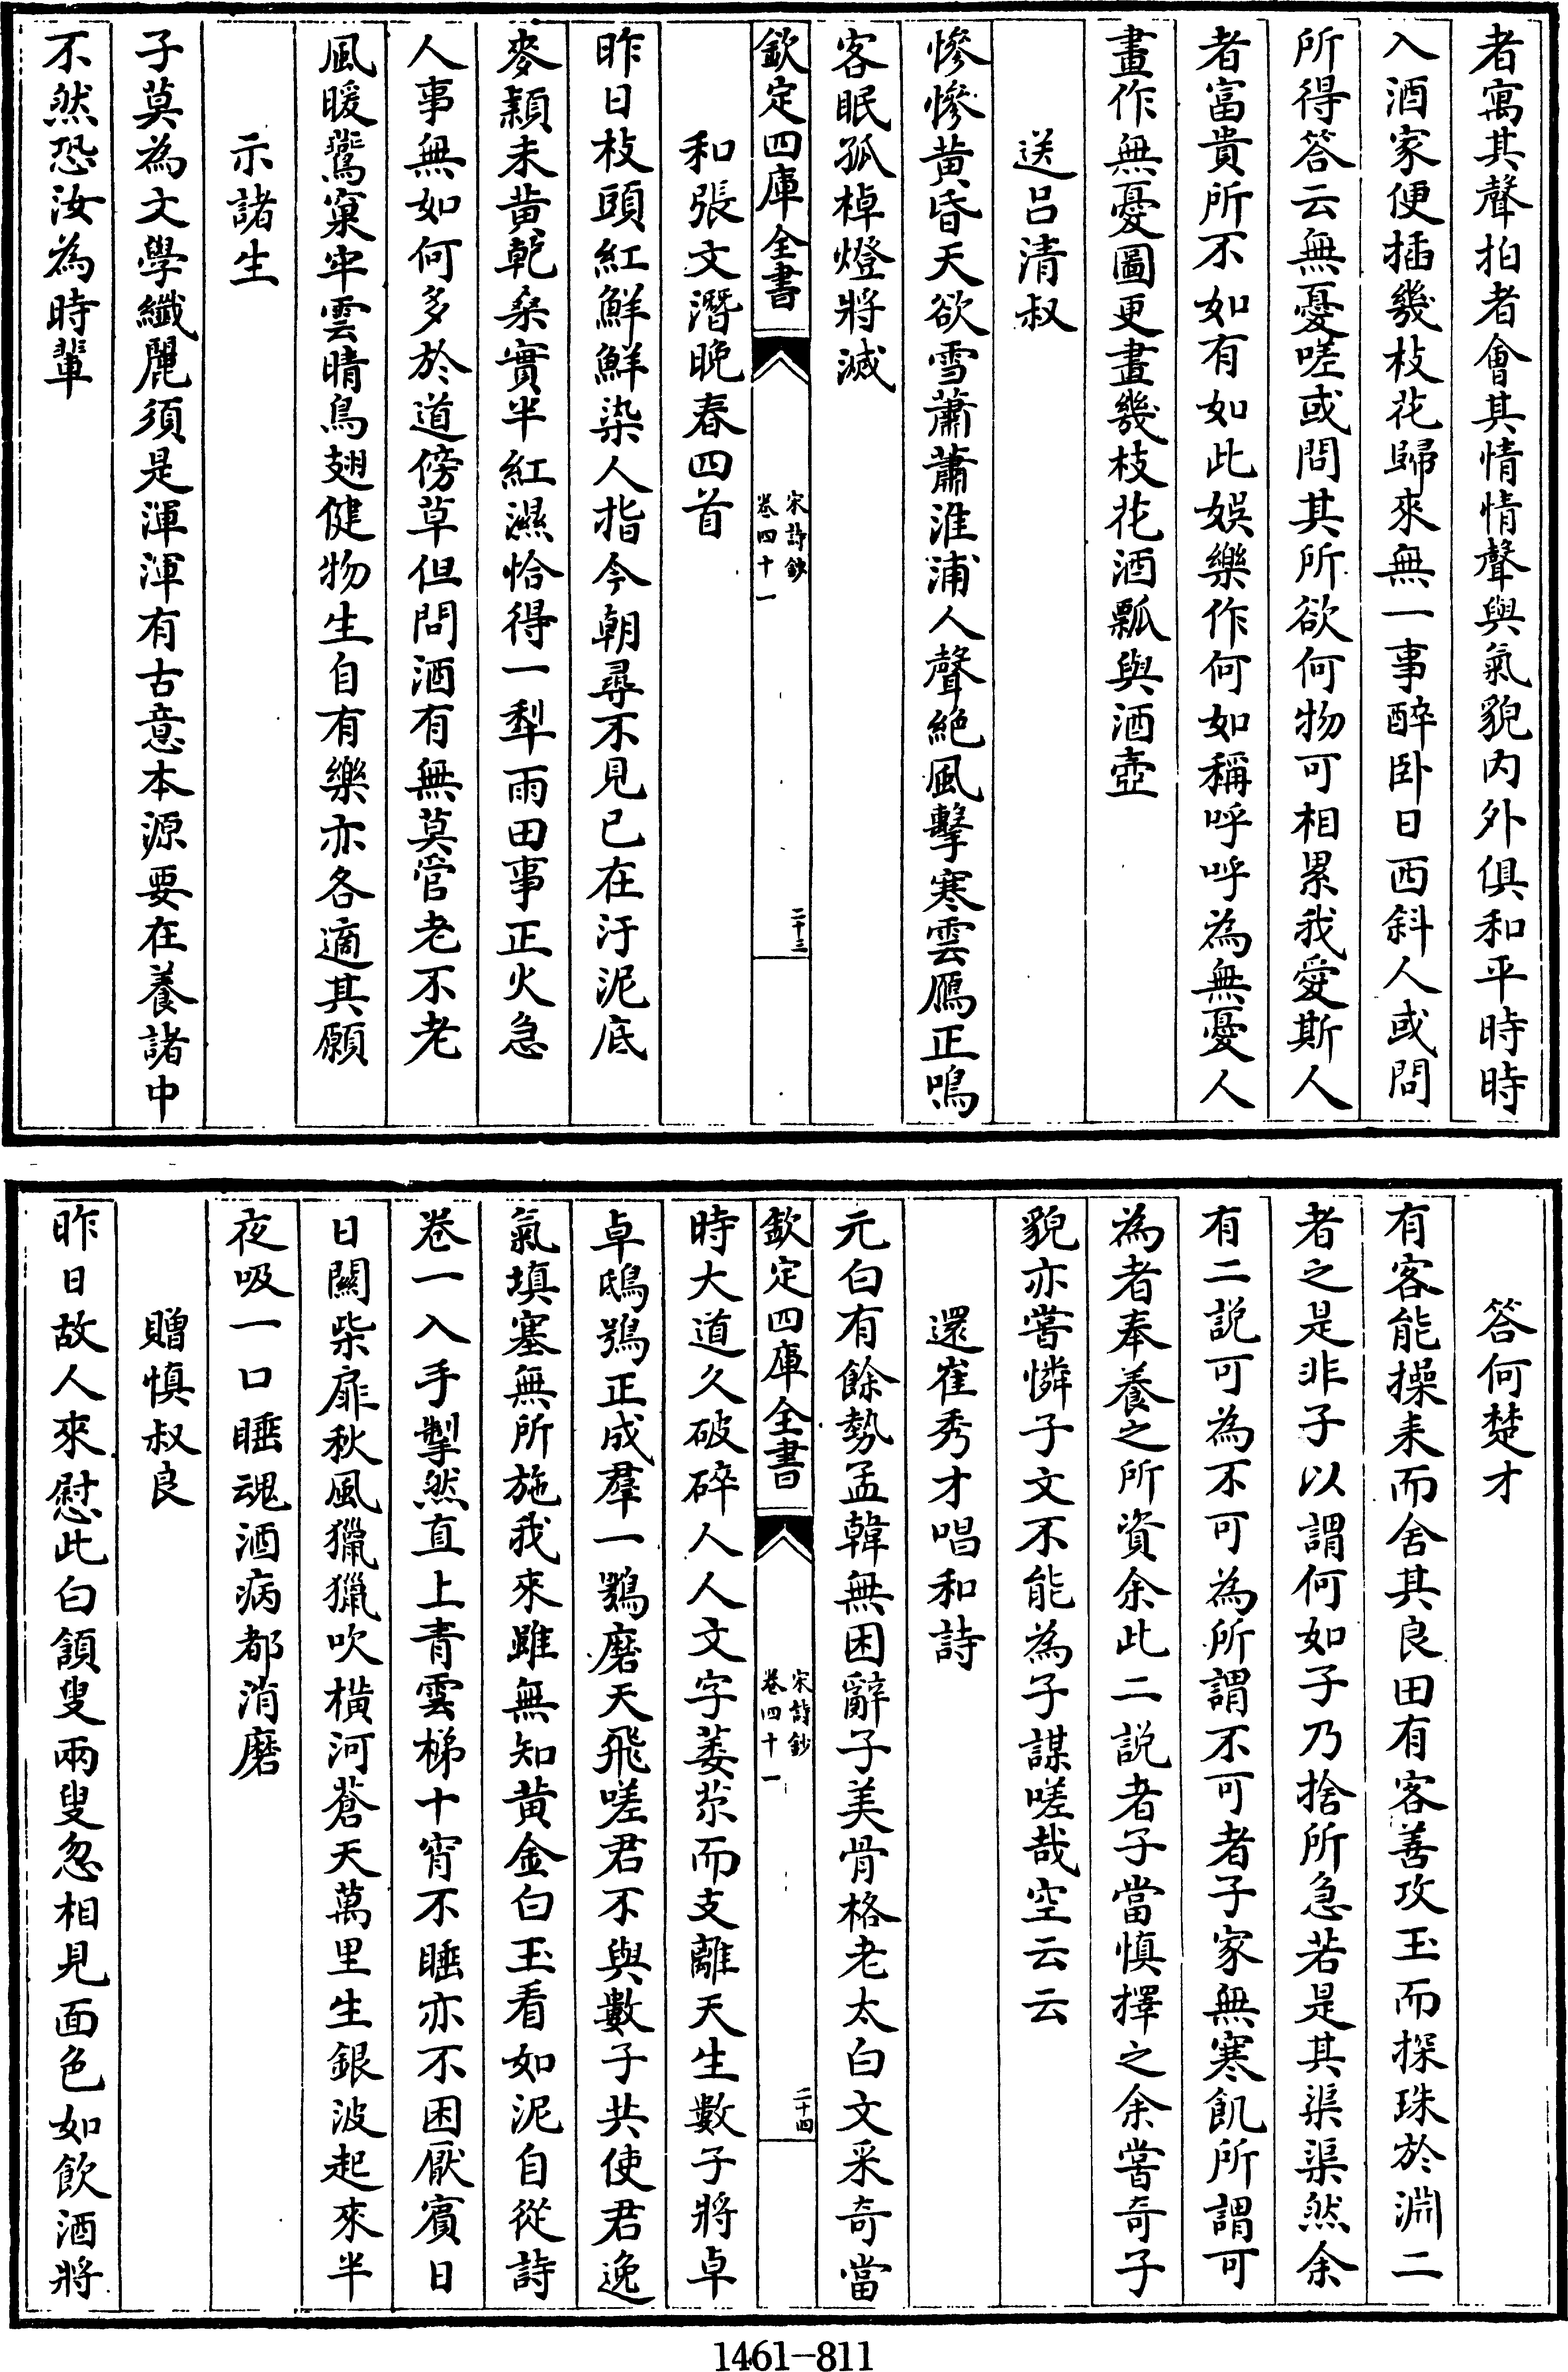 者寓其聲拍者會其情情聲與氣貌内外俱和平時時
入酒家便插幾枝花歸來無一事醉卧日西斜人或問
所得答云無憂嗟或問其所欲何物可相累我愛斯人
者富貴所不如有如此娛樂作何如稱呼呼為無憂人
畫作無憂圖更畫幾枝花酒瓢與酒壺
送呂清叔
慘慘黄昏天欲雪蕭蕭淮浦人聲絶風擊寒雲鴈正鳴
客眠孤棹燈將滅
欽定四庫全書
宋詩鈔
卷四十一
二十三
和張文潛晚春四首
昨日枝頭紅鮮鮮染人指今朝尋不見已在汙泥底
麥穎未黄乾桑實半紅濕恰得一犁雨田事正火急
人事無如何多於道傍草但問酒有無莫管老不老
風暖鸎窠牢雲晴鳥翅健物生自有樂亦各適其願
示諸生
子莫為文學纖麗須是渾渾有古意本源要在養諸中
不然恐汝為時輩
答何楚才
有客能操耒而舍其良田有客善攻玉而探珠於淵二
者之是非子以謂何如子乃捨所急若是其渠渠然余
有二説可為不可為所謂不可者子家無寒飢所謂可
為者奉養之所資余此二説者子當慎擇之余嘗奇子
貌亦嘗憐子文不能為子謀嗟哉空云云
還崔秀才唱和詩
元白有餘勢孟韓無困辭子美骨格老太白文采奇當
欽定四庫全書
宋詩鈔
卷四十一
二十四
時大道久破碎人人文字萎苶而支離天生數子將卓
卓鴟鴞正成羣一鶚磨天飛嗟君不與數子共使君逸
氣填塞無所施我來雖無知黄金白玉看如泥自從詩
卷一入手掣然直上青雲梯十宵不睡亦不困厭賓日
日關柴扉秋風獵獵吹橫河蒼天萬里生銀波起來半
夜吸一口睡魂酒病都消磨
贈慎叔良
昨日故人來慰此白頷叟兩叟忽相見面色如飲酒將
1461-811